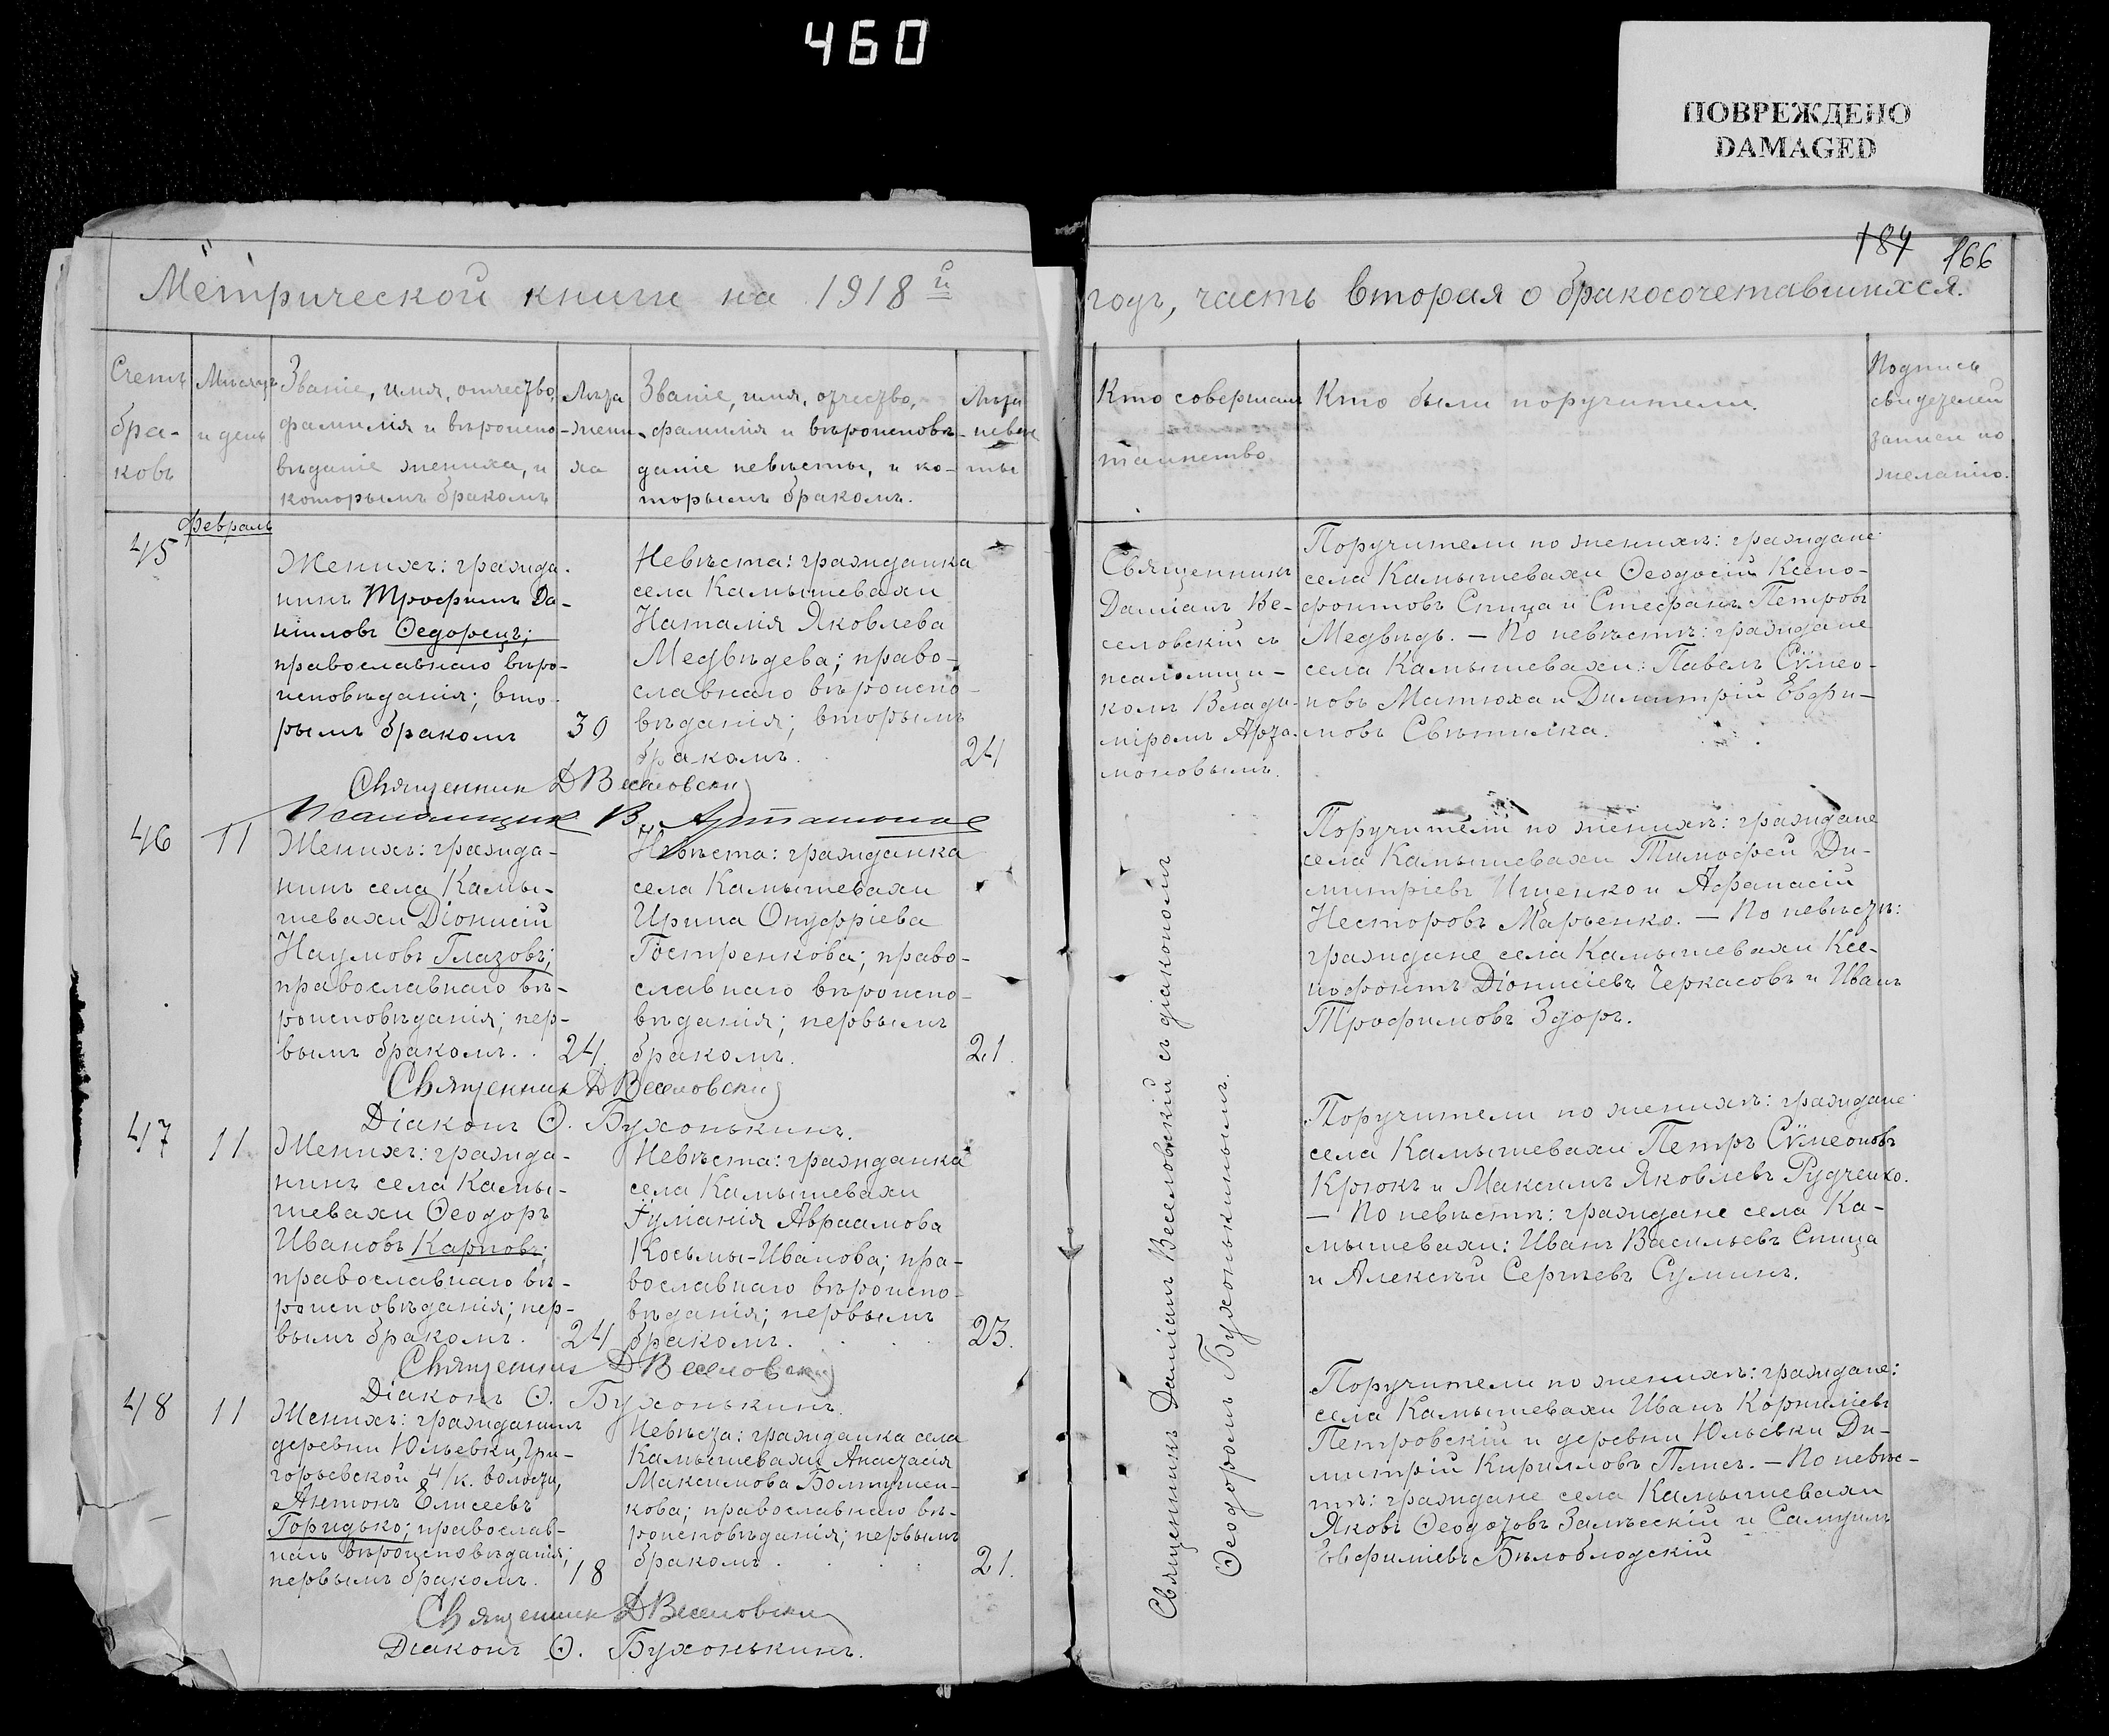 460
ПОВРЕЖДЕНО
DAMAGED
187 166
Метрической книги на 1918й
годъ, часть вторая о бракосочетавшихся.
Счетъ бра-
ковъ
Мѣсяцъ
и день
Званіе, имя, отчество,
фамилія и вѣроиспо-
вѣданіе жениха, и
которымъ бракомъ
Лѣта
жени-
ха
Званіе, имя, отчество,
фамилія и вѣроисповѣ-
даніе невѣсты, и ко-
торымъ бракомъ.
Лѣта
невѣс-
ты
Кто совершалъ
таинство
Кто были поручители.
Подпись
свидетелей
записи по
желанію.
45
февраль
Женихъ: гражда-
нинъ Трофимъ Да-
ниловъ Ѳедорецъ;
православнаго вѣро-
исповѣданія; вто-
рымъ бракомъ
30
Невѣста: гражданка
села Камышевахи
Наталія Яковлева
Медвѣдева; право-
славнаго вѣроиспо-
вѣданія; вторымъ
бракомъ.
24
Священникъ
Даміанъ Ве-
селовскій съ
псаломщи-
комъ Влади-
міромъ Арта-
моновымъ.
Поручители по женихѣ: граждане
села Камышевахи Ѳеодосій Ксено-
фонтовъ Спица и Стефанъ Петровъ
Медвѣдь. — По невѣстѣ: граждане
села Камышевахи: Павелъ Сѵмео-
новъ Матюха и Димитрій Евфи-
мовъ Свѣтилка.
Священник Д Веселовскій
Псаломщик В. Артамонов
46
11
Женихъ: гражда-
нинъ села Камы-
шевахи Діонисій
Наумовъ Глазовъ;
православнаго вѣ-
роисповѣданія; пер-
вымъ бракомъ.
24.
Невѣста: гражданка
села Камышевахи
Ирина Онуфріева
Гостренкова; право-
славнаго вѣроиспо-
вѣданія; первымъ
бракомъ.
21.
Поручители по женихѣ: граждане
села Камышевахи Тимофей Ди-
митріевъ Ищенко и Афанасій
Несторовъ Марьенко. — По невѣстѣ:
граждане села Камышевахи Ксе-
нофонтъ Діонисіевъ Черкасовъ и Иванъ
Трофимовъ Здоръ.
Священник Д Веселовскій
Діаконъ Ѳ. Бухонькинъ.
47
11.
Женихъ: гражда-
нинъ села Камы-
шевахи Ѳеодоръ
Ивановъ Карповъ;
православнаго вѣ-
роисповѣданія; пер-
вымъ бракомъ.
24
Невѣста: гражданка
села Камышевахи
Іуліанія Авраамова
Косьмы-Иванова; пра-
вославнаго вѣроиспо-
вѣданія; первымъ
бракомъ.
23.
Поручители по женихѣ: граждане
села Камышевахи Петръ Сѵмеоновъ
Крюкъ и Максимъ Яковлевъ Рудченко.
— По невѣстѣ: граждане села Ка-
мышевахи: Иванъ Васильевъ Спица
и Алексѣй Сергѣевъ Суминъ.
Священник Д Веселовскій
Діаконъ Ѳ. Бухонькинъ.
48
11
Женихъ: гражданинъ
деревни Юльевки, Гри-
горьевской волости,
Антонъ Елисеевъ
Горидько; православ-
наго вѣроисповѣданія;
первымъ бракомъ.
18
Невѣста: гражданка села
Камышевахи Анастасія
Максимова Болтушен-
кова; православнаго вѣ-
роисповѣданія; первымъ
бракомъ.
21.
Поручители по женихѣ: граждане:
села Камышевахи Иванъ Корниліевъ
Петровскій и деревни Юльевки Ди-
митрій Кирилловъ Плисъ. — По невѣс-
тѣ: граждане села Камышевахи
Яковъ Ѳеодотовъ Залѣсскій и Самуилъ
Евфиміевъ Бѣлоблодскій
Священник Д Веселовскій
Діаконъ Ѳ. Бухонькинъ.
Священникъ Даміанъ Веселовскій съ діакономъ
Ѳеодоромъ Бухонькинымъ.